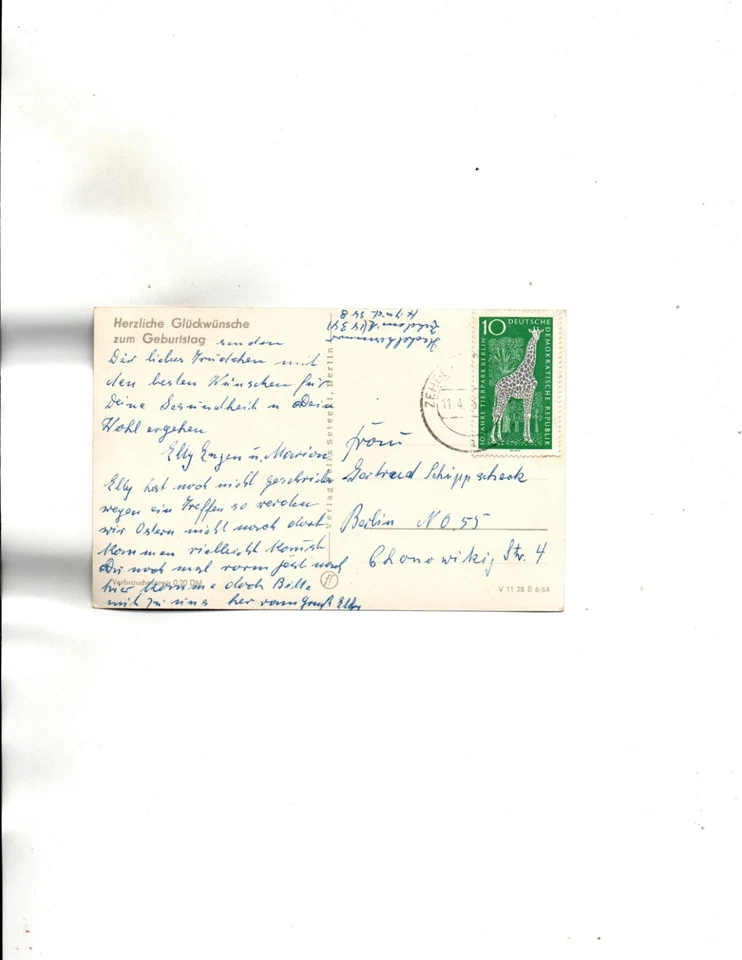 Herzliche Glückwünsche
zum Geburtstag senden
Dir liebes Trudchen mit
den besten Wünschen für
Deine Gesundheit u Dein
Wohl ergehen
Elly Eugen u. Marion
Elly hat noch nicht geschrieben
wegen ein Treffen so werden
wir Ostern nicht nach dort
kommen vielleicht kommst
Du noch mal
hier komme doch Bitte
mit zu uns her Gruß Elly
Verbraucherpreis 0,20 DM
Verlag Felix Setecki, Berlin
10 DEUTSCHE DEMOKRATISCHE REPUBLIK
10 JAHRE TIERPARK BERLIN
ZEHD
11.4.
Frau
Gertraud Schippscheck
Berlin NO 55
Chodowieckistr. 4
V 11 28 B 6/64